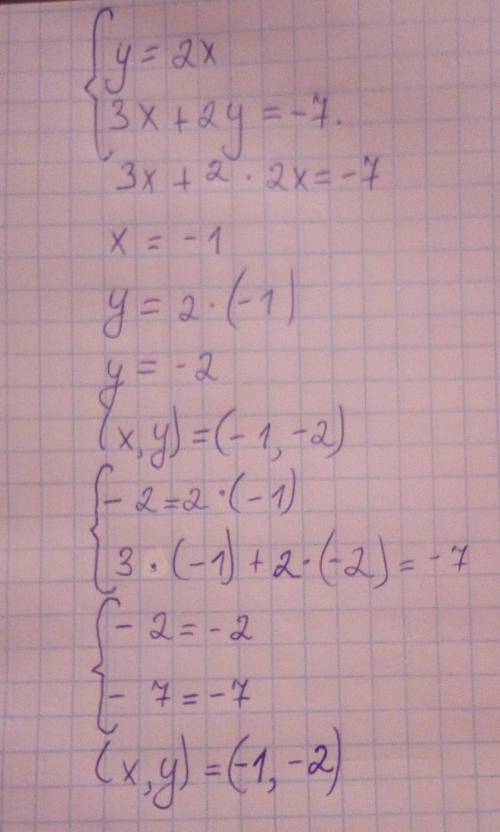 y = 2x
3x + 2y = -7.
3x + 2 · 2x = -7
x = -1
y = 2 · (-1)
y = -2
(x, y) = (-1, -2)
- 2 = 2 · (-1)
3 · (-1) + 2 · (-2) = -7
- 2 = -2
- 7 = -7
(x, y) = (-1, -2)